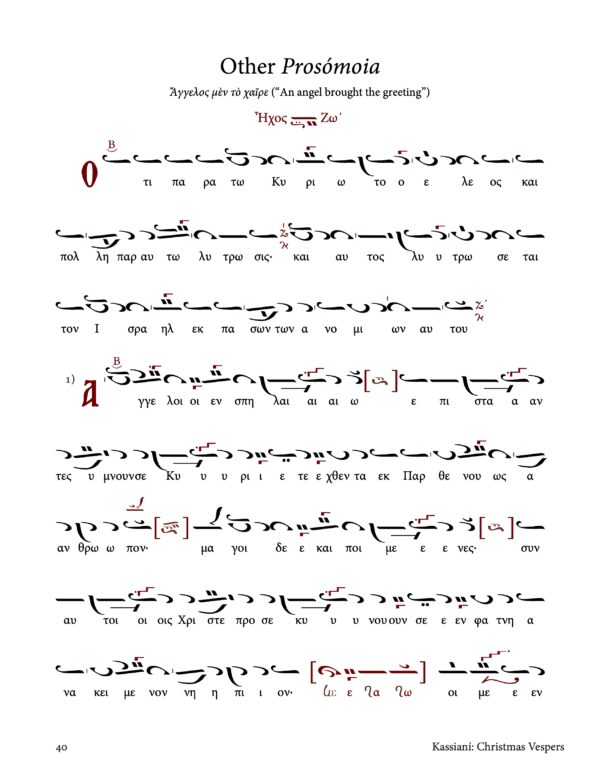 Other Prosómoia
Ἄγγελος μὲν τὸ χαῖρε (“An angel brought the greeting”)
Ἦχος Ζω΄
B
Ο τι πα ρα τω Κυ ρι ω το ο ε λε ος και
πολ λη παρ αυ τω λυ τρω σις· και αυ τος λυ υ τρω σε ται
τον Ι σρα ηλ εκ πα σων των α νο μι ων αυ του
B
1) Α γγε λοι οι εν σπη λαι αι αι ω ε πι στα α αν
τες υ μνουνσε Κυ υ υ ρι ι ε τε ε χθεν τα εκ Παρ θε νου ως α
αν θρω ω πον· μα γοι δε ε και ποι με ε ε νες· συν
αυ τοι οι οις Χρι στε προ σε κυ υ υ νου ουν σε ε εν φα τνη α
να κει με νον νη η πι ι ον· οι με ε εν
40 Kassianí: Christmas Vespers